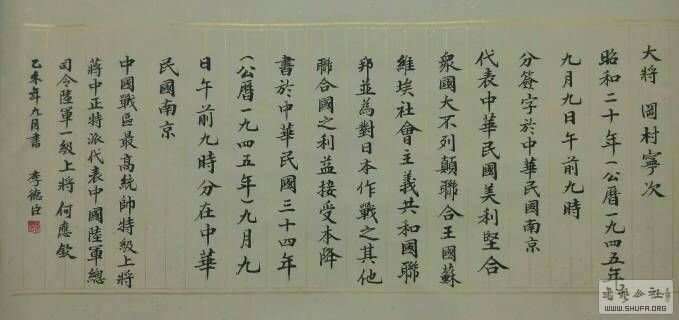 大將 岡村寧次
昭和二十年(公曆一九四五年)
九月九日午前九時
分簽字於中華民國南京
代表中華民國美利堅合
衆國大不列顛聯合王國蘇
維埃社會主義共和國聯
邦並為對日本作戰之其他
聯合國之利益接受本降
書於中華民國三十四年
(公曆一九四五年)九月九
日午前九時 分在中華
民國南京
中國戰區最高統帥特級上將
蔣中正特派代表中國陸軍總
司令陸軍一級上將 何應欽
乙未年九月書 李德
書藝公社
WWW.SHUFA.ORG